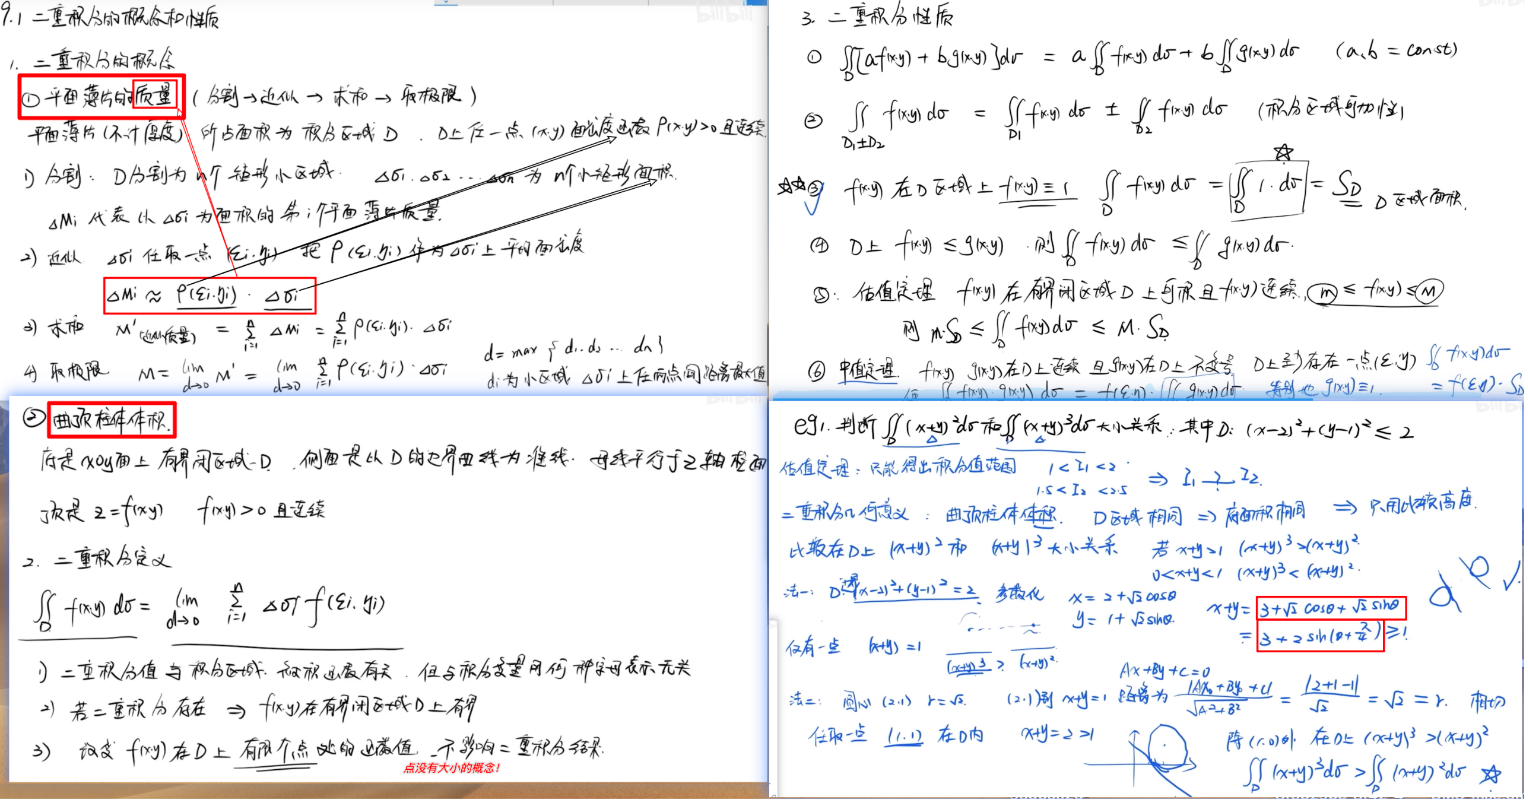 9.1 二重积分的概念和性质
1. 二重积分的概念
① 平面薄片的质量 (分割→近似→求和→取极限)
平面薄片(不计厚度) 所占面积为积分区域D. D上任一点(x,y)面密度函数ρ(x,y)>0且连续
1) 分割: D分割为n个矩形小区域. Δσ1.Δσ2...Δσn 为n个小矩形面积.
ΔMi 代表以Δσi为面积的第i个平面薄片质量.
2) 近似 Δσi任取一点(ξi.ηi) 把ρ(ξi.ηi)作为Δσi上平均面密度
ΔMi ≈ ρ(ξi.ηi) · Δσi
3) 求和 M'(近似质量) = Σ(i=1→n) ΔMi = Σ(i=1→n) ρ(ξi.ηi)·Δσi
4) 取极限 M = lim(d→0) M' = lim(d→0) Σ(i=1→n) ρ(ξi.ηi)·Δσi
d = max{d1.d2 ... dn}
di为小区域Δσi上任两点间距离最大值
② 曲顶柱体体积.
底是xOy面上有界闭区域D. 侧面是以D的边界曲线为准线.母线平行于z轴柱面
顶是 z=f(x,y) f(x,y)>0 且连续
2. 二重积分定义
∬_D f(x,y)dσ = lim(d→0) Σ(i=1→n) Δσi f(ξi.ηi)
1) 二重积分值与积分区域.被积函数有关.但与积分变量用何种字母表示无关
2) 若二重积分存在 ⇒ f(x,y)在有界闭区域D上有界
3) 改变f(x,y)在D上有限个点处的函数值 不影响二重积分结果.
点没有大小的概念！
3. 二重积分性质
① ∬_D [af(x,y)+bg(x,y)]dσ = a∬_D f(x,y)dσ + b∬_D g(x,y)dσ (a,b=const)
② ∬_{D1±D2} f(x,y)dσ = ∬_{D1} f(x,y)dσ ± ∬_{D2} f(x,y)dσ (积分区域可加性)
③ f(x,y)在D区域上f(x,y)≡1 ∬_D f(x,y)dσ = ∬_D 1·dσ = S_D D区域面积.
④ D上 f(x,y)≤g(x,y).则∬_D f(x,y)dσ ≤ ∬_D g(x,y)dσ.
⑤: 估值定理 f(x,y)在有界闭区域D上可积且f(x,y)连续, m≤f(x,y)≤M
则 m·S_D ≤ ∬_D f(x,y)dσ ≤ M·S_D
⑥ 中值定理 f(x,y) g(x,y)在D上连续 且g(x,y)在D上不变号 D上至少存在一点(ξ,η) ∬_D f(x,y)dσ
f(x,y) g(x,y)dσ = f(ξ,η)·∬ g(x,y)dσ 特别地g(x,y)≡1. = f(ξ,η)·S_D
eg1. 判断∬_D (x+y)²dσ和∬_D (x+y)³dσ大小关系.其中D: (x-2)²+(y-1)²≤2
估值定理:只能得出积分值范围 1<I1<2
1.5<I2<2.5 ⇒ I1 ? I2.
二重积分几何意义: 曲顶柱体体积. D区域相同 ⇒ 底面积相同 ⇒ 只用比较高度.
比较在D上(x+y)²和(x+y)³大小关系 若x+y>1 (x+y)³>(x+y)²
0<x+y<1 (x+y)³<(x+y)².
法一: D:(x-2)²+(y-1)²=2 参数化 x=2+√2cosθ
y=1+√2sinθ.
x+y= 3+√2cosθ+√2sinθ
= 3+2sin(θ+π/4) ≥1.
仅有一点 (x+y)=1 (x+y)³ > (x+y)².
Ax+By+C=0
法二: 圆心(2.1) r=√2. (2.1)到x+y=1 距离为 |Ax0+By0+C|/√(A²+B²) = |2+1-1|/√2 = √2 = r. 相切
任取一点(1.1)在D内 x+y=2>1
除(1,0)外 在D上(x+y)³>(x+y)²
∬_D (x+y)³dσ > ∬_D (x+y)²dσ